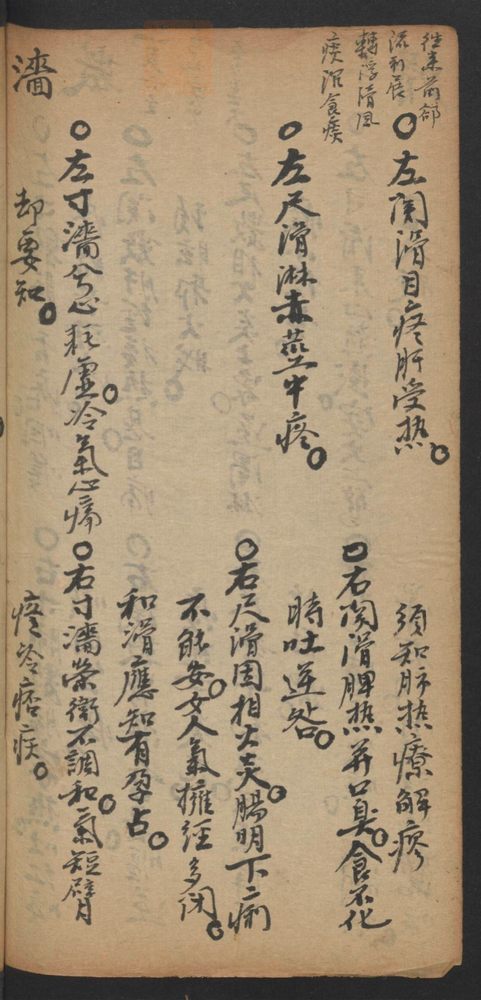 往来前卻
流利展
轉浮滑風
痰沉食痰
○左関滑目疼肝受热○
須知肺热療解瘳
○右関滑脾热并口臭○食不化
時吐逆咎○
○左尺滑淋赤莖中疼○
○右尺滑因相火炎○腸明下二痢
不能安○女人氣擁經多閉○
和滑應知有孕占○
○左寸濇兮心耗虛○冷氣心痛
却要知○
○右寸濇荣衛不調和○氣短臂
疼冷痞疾○
濇